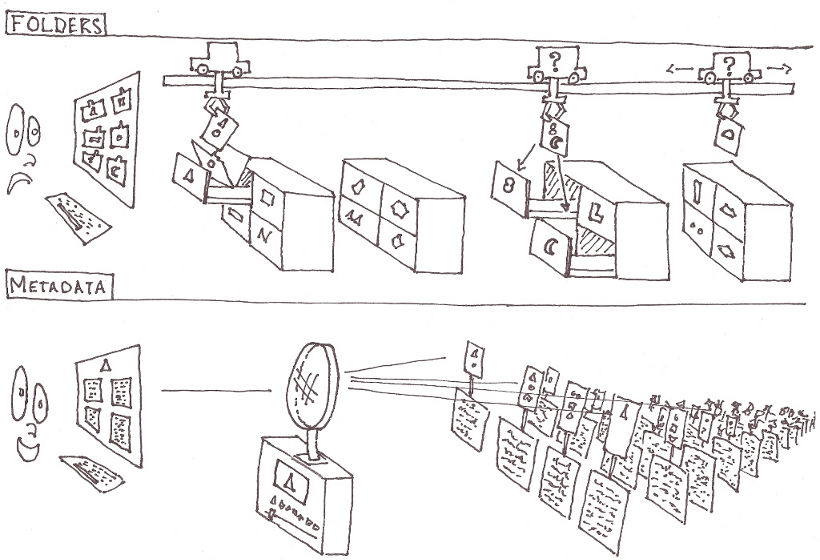 FOLDERS
? ?
METADATA